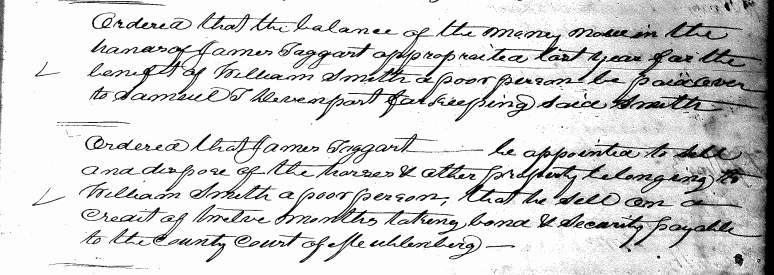 Ordered that the balance of the money now in the
hands of James Taggart appropraited last year for the
benefit of William Smith a poor person be paid over
to Samuel T Devenport for keeping said Smith
Ordered that James Taggart be appointed to sell
and dispose of the horses & other property belonging to
William Smith a poor person, that he sell on a
Credit of twelve months taking bond & security payable
to the County Court of Meuhlenberg